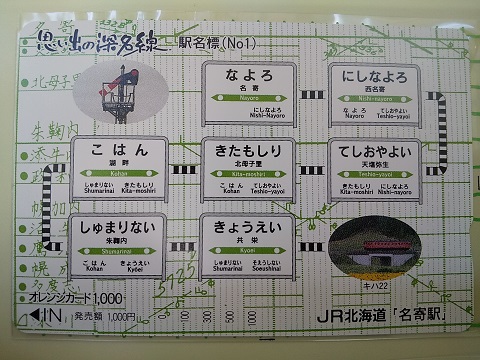 思い出の深名線 駅名標(No1)
北母子里
朱鞠内
添牛内
なよろ
名寄
Nayoro
にしなよろ
Nishi-Nayoro
にしなよろ
西名寄
Nishi-nayoro
なよろ てしおやよい
Nayoro Teshio-yayoi
こはん
湖畔
Kohan
しゅまりない きたもしり
Shumarinai Kita-moshiri
きたもしり
北母子里
Kita-moshiri
こはん てしおやよい
Kohan Teshio-yayoi
てしおやよい
天塩弥生
Teshio-yayoi
きたもしり にしなよろ
Kita-moshiri Nishi-nayoro
しゅまりない
朱鞠内
Shumarinai
こはん きょうえい
Kohan Kyōei
きょうえい
共栄
Kyoei
しゅまりない そえうしない
Shumarinai Soeushinai
キハ22
オレンジカード1,000
IN 発売額 1,000円
1000
800
500
300
100
50
0
JR北海道「名寄駅」